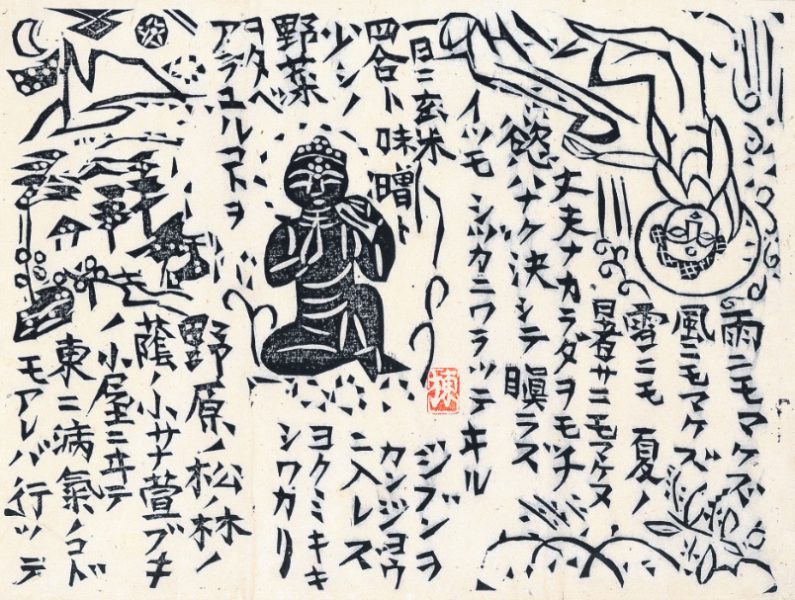 雨ニモマケズ
風ニモマケズ
雪ニモ夏ノ
暑サニモマケヌ
丈夫ナカラダヲモチ
慾ハナク決シテ瞋ラズ
イツモシヅカニワラッテヰル
一日ニ玄米
四合ト味噌ト
少シノ
野菜
ヲタベ
アラユルコトヲ
ジブンヲ
カンジョウ
ニ入レズ
ヨクミキキ
シワカリ
野原ノ松ノ林ノ
蔭ノ小サナ萱ブキ
ノ小屋ニヰテ
東ニ病氣ノコド
モアレバ行ッテ
棟